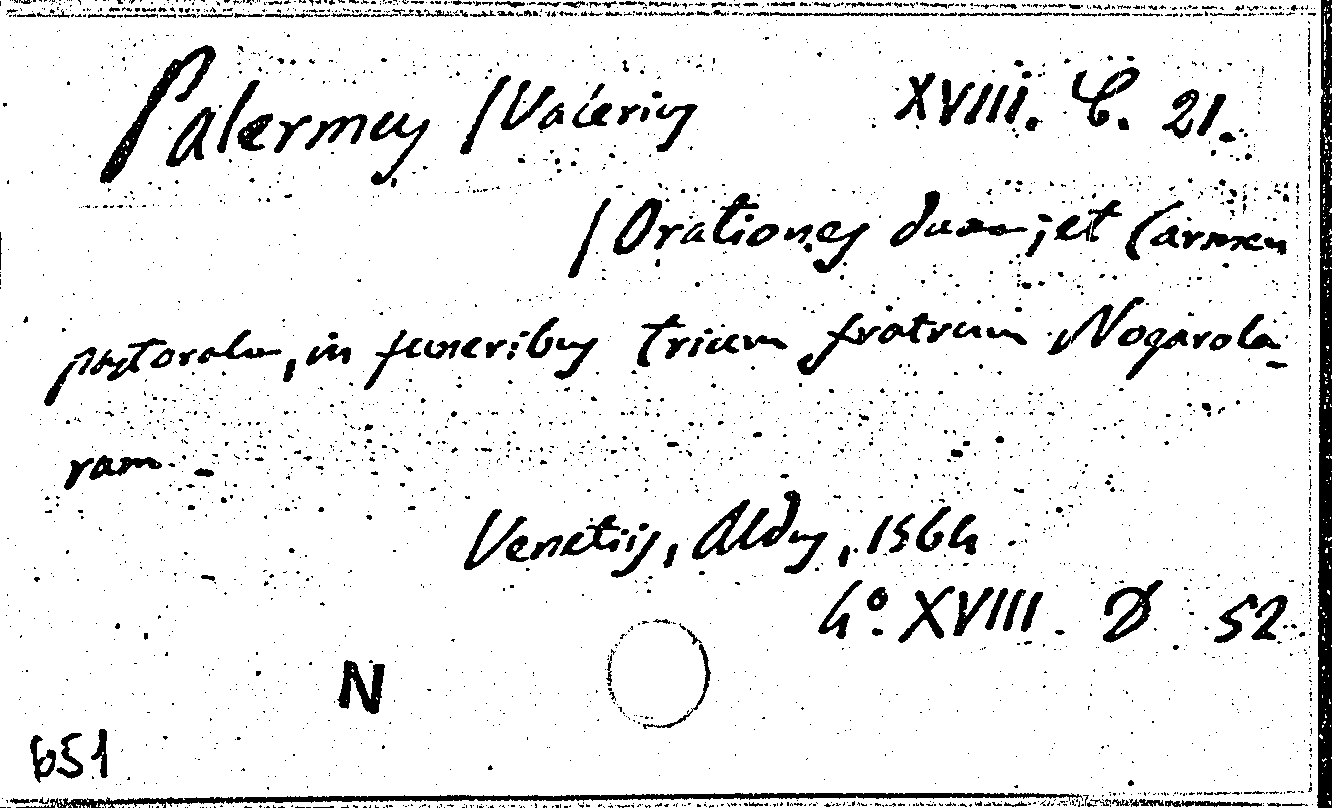 Palermus /Valerius XVIII. C. 21.
/Orationes duae; et Carmen
pastorale, in funeribus trium fratrum Nogarola-
rum -
Venetiis, Aldus, 1564
4° XVIII. D 52
N
651